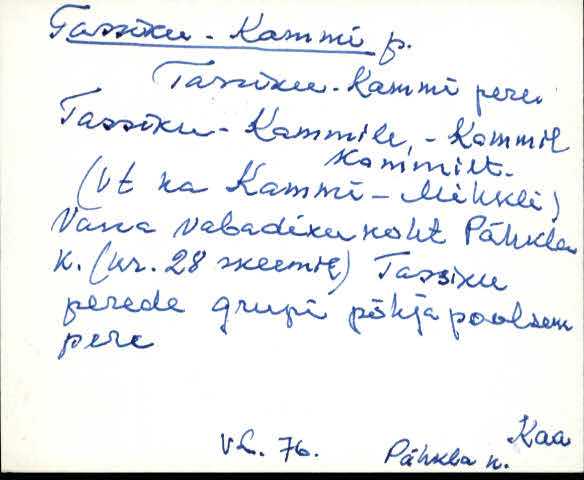 Tassiku - Kammi p.
Tassiku - Kammi pere.
Tassiku - Kammile, - Kammil
Kammilt.
(vt ka Kammi - Mihkli)
Vana vabadikukoht Pähkla
k. (nr. 28 skeemil) Tassiku
perede grupi põhjapoolsem
pere
VL. 76.
Kaa
Pähkla k.